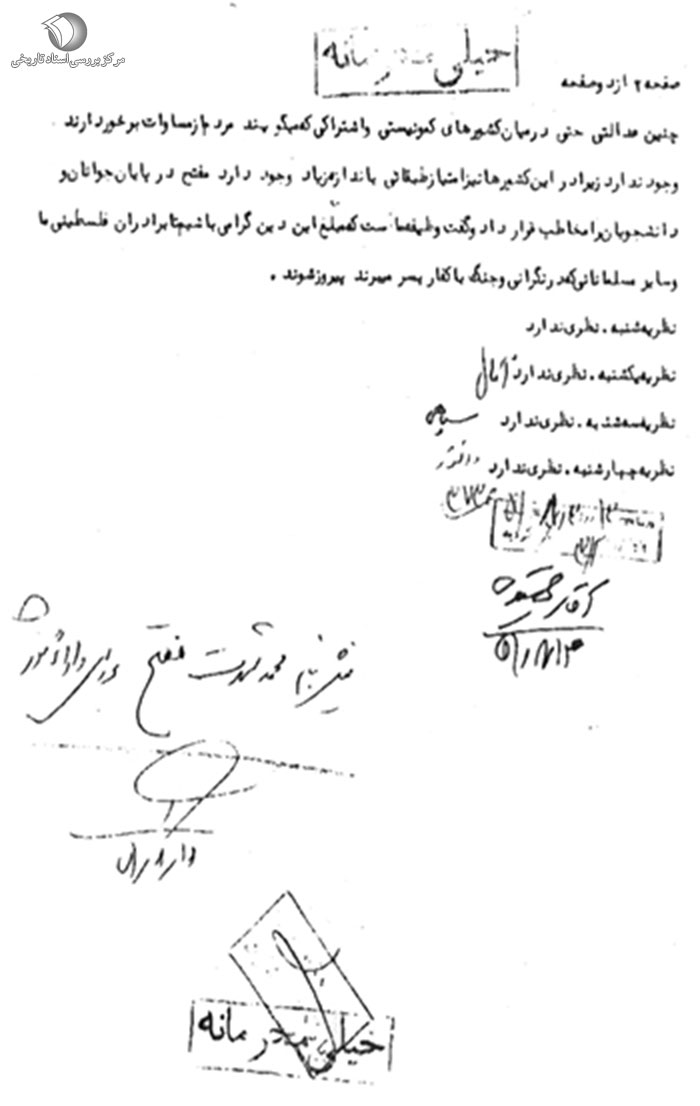 مرکز بررسی اسناد تاریخی
خیلی محرمانه
صفحه ۲ از دو صفحه
چنین عدالتی حتی در میان کشورهای کمونیستی واشتراکی که میگویند مردم از مساوات برخوردارند
وجود ندارد زیرا در این کشورها نیز امتیاز طبقاتی باندازه زیاد وجود دارد مفتح در پایان جوانان و
دانشجویان را مخاطب قرار داد و گفت وظیفه ما است که مبلغ این دین گرامی باشیم تا برادران فلسطینی ما
وسایر مسلمانانی که در نگرانی و جنگ با کفار بسر میبرند پیروز شوند .
نظریه شنبه . نظری ندارد
نظریه یکشنبه . نظری ندارد آمال
نظریه سه شنبه . نظری ندارد
نظریه چهارشنبه . نظری ندارد
محمد مفتح
خیلی محرمانه